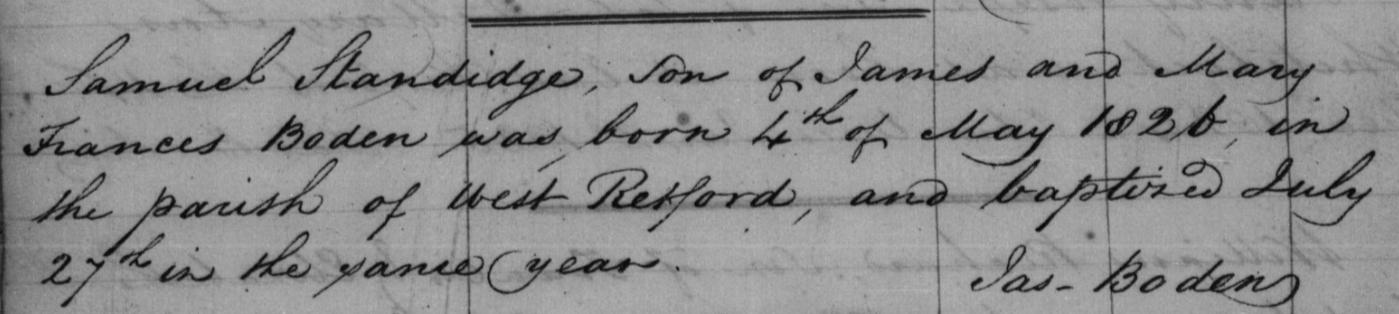 Samuel Standidge, son of James and Mary
Frances Boden was born 4th of May 1826, in
the parish of West Retford, and baptized July
27th in the same year.
Jas- Boden